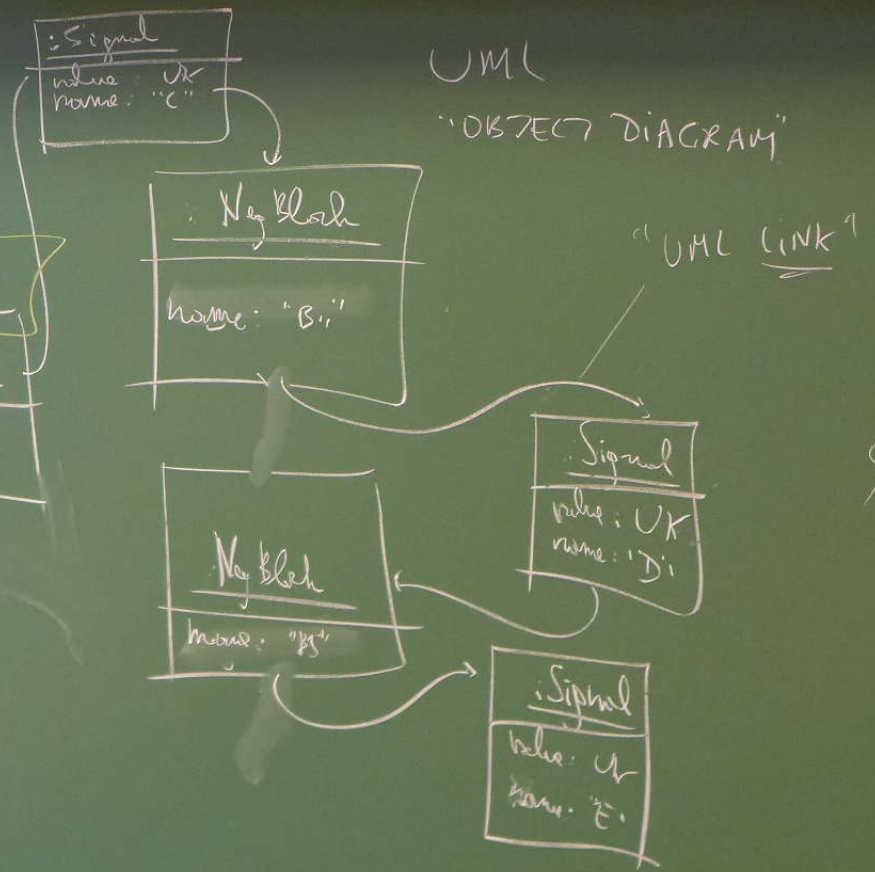 :Signal
value: UK
name: "C"
UML
"OBJECT DIAGRAM"
: NegBlock
name: "B,,"
"UML LINK"
:Signal
value: UK
name: "D"
:NegBlock
name: "B3"
:Signal
value: UK
name: "E"